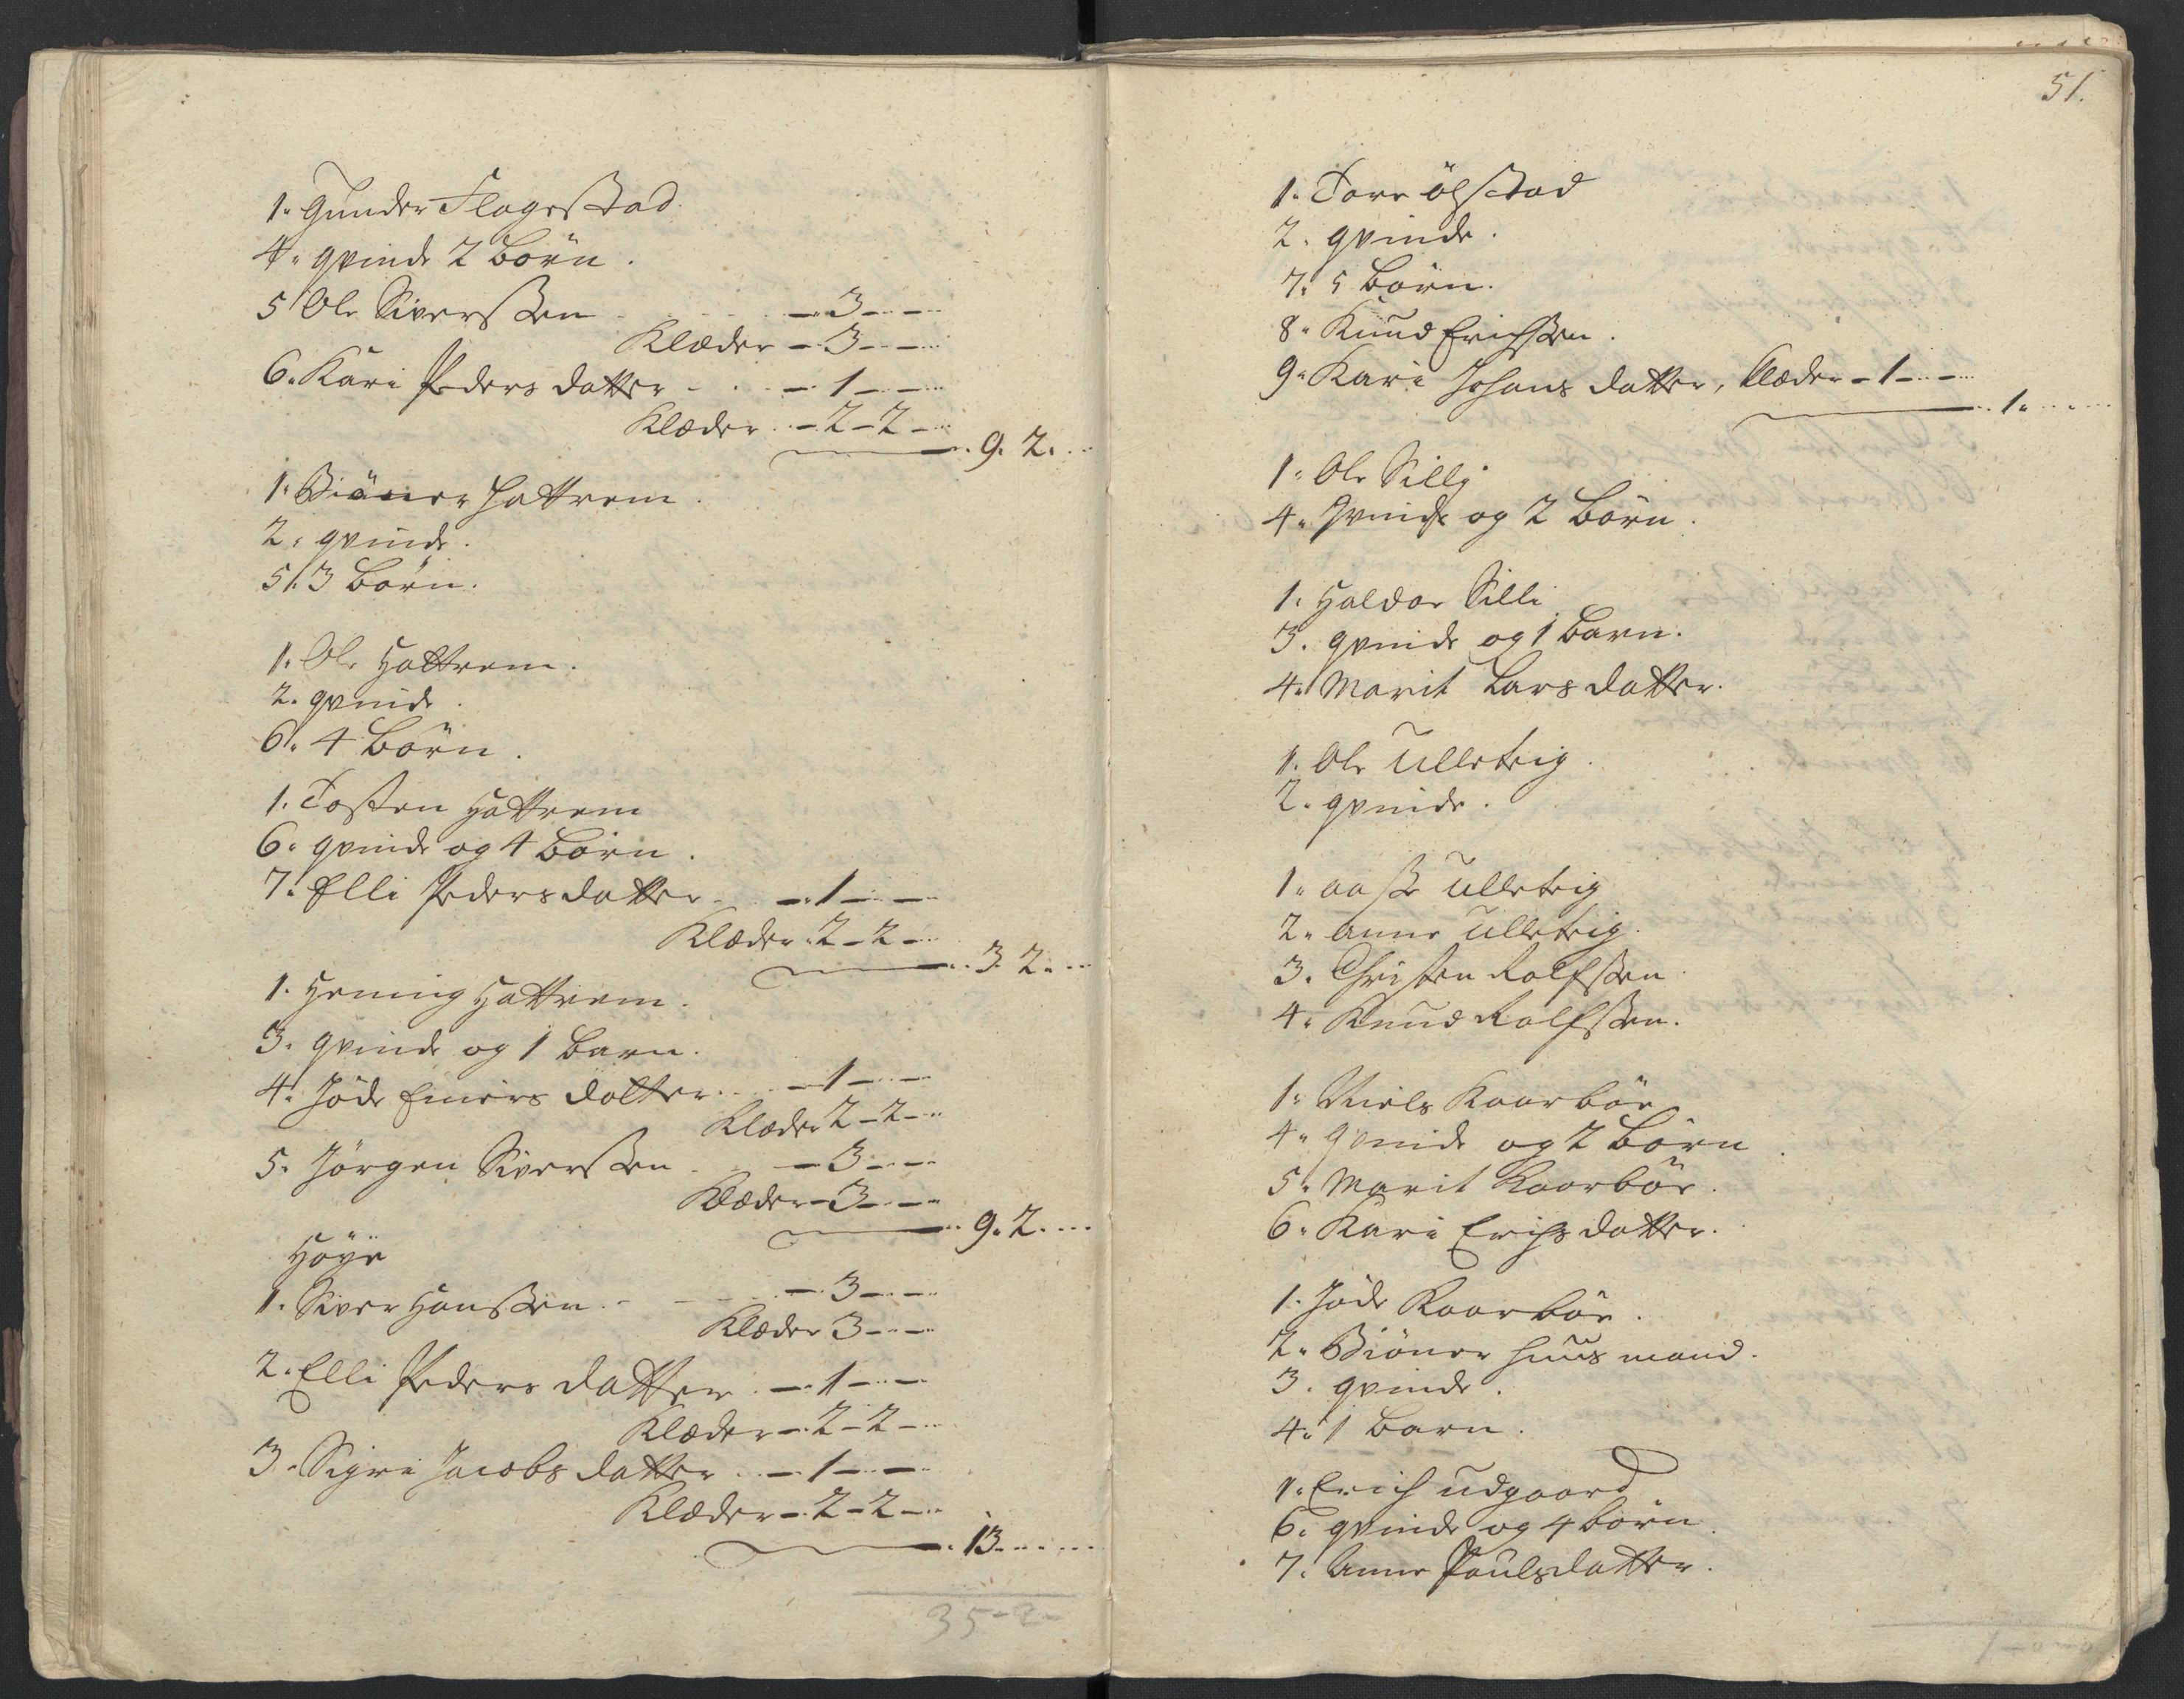 1. Gunder Flagestad
4. qvinde 2 börn.
5 Ole Siverssen - 3 - -
Klæder - 3 - -
6. Kari Peders datter - 1 - -
Klæder - 2 - 2 -
9. 2.
1. Biöner Hattrem.
2. qvinde.
5. 3 börn.
1. Ole Hattrem.
2. qvinde.
6. 4 börn.
1. Tosten Hattrem
6. qvinde og 4 börn.
7. Elli Pedersdatter - 1 - -
Klæder 2 - 2 -
3. 2.
1. Hening Hattrem.
3. qvinde og 1 barn.
4. Jöde datter - 1 - -
Klæder 2 - 2 -
5. Jörgen Siverssen - 3 - -
Klæder - 3 - -
9. 2.
Höye
1. Siver Hanssen. - 3 - -
Klæder 3 - -
2. Elli Peders datter - 1 - -
Klæder - 2 - 2 -
3. Sigri Jacobs datter - 1 - -
Klæder - 2 - 2 -
13.
35 - 2 -
51.
1. Tore ölstad
2. qvinde.
7. 5 börn.
8. Knud Erichssen.
9. Kari Johans datter, Klæder - 1 - -
1.
1. Ole Silly
4. Qvinde og 2 börn.
1. Haldor Silli
3. qvinde og 1 barn.
4. Marit Lars datter.
1. Ole Ulleteig.
2. qvinde.
1. aasse Ulleteig
2. anne Ulleteig.
3. Christen Rolfssen.
4. Knud Rolfssen.
1. Niels Kaarböe
4. Qvinde og 2 börn.
5. Marit Kaarböe.
6. Kari Erichs datter.
1. Jöde Kaarböe.
2. Biöner huus mand.
3. qvinde.
4. 1 barn.
1. Erich udgaard
6. qvinde og 4 börn.
7. Anne Paulsdatter.